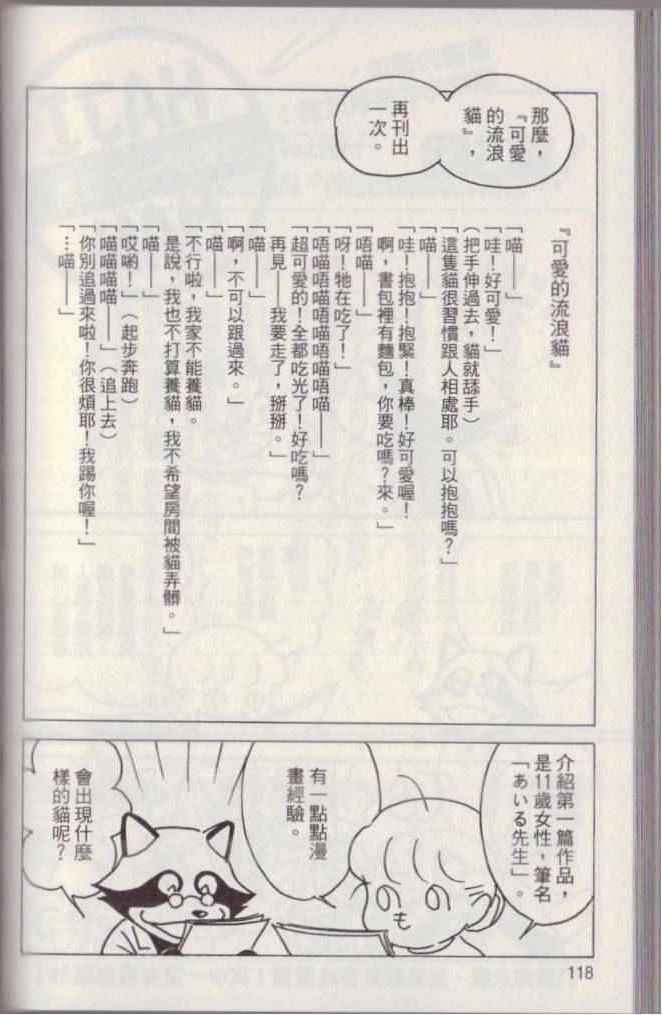 那麼，
『可愛
的流浪
貓』，
再刊出
一次。
『可愛的流浪貓』
「喵——」
「哇！好可愛！」
（把手伸過去，貓就舔手）
「這隻貓很習慣跟人相處耶。可以抱抱嗎？」
「喵——」
「哇！抱抱！抱緊！真棒！好可愛喔！
啊，書包裡有麵包，你要吃嗎？來。」
「唔喵——」
「呀！牠在吃了！」
「唔喵唔喵唔喵唔喵唔喵——」
「超可愛的！全都吃光了！好吃嗎？
再見——我要走了，掰掰。」
「喵——」
「啊，不可以跟過來。」
「喵——」
「不行啦，我家不能養貓。
是說，我也不打算養貓，我不希望房間被貓弄髒。」
「喵——」
「哎喲！」（起步奔跑）
「喵喵喵喵——」（追上去）
「你別追過來啦！你很煩耶！我踢你喔！」
「…喵——」
介紹第一篇作品，
是11歲女性，筆名
「あいる先生」。
有一點點漫
畫經驗。
會出現什麼
樣的貓呢？
118